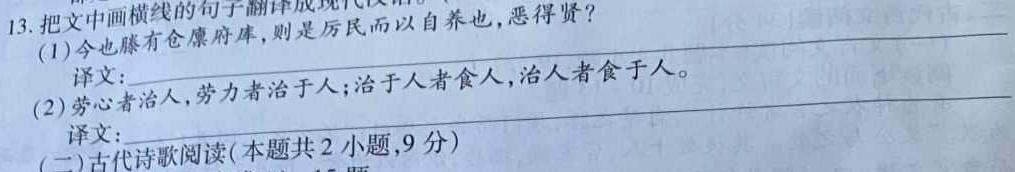 13.把文中画横线的句子翻译成现代汉语。
(1)今也滕有仓廪府库,则是厉民而以自养也,恶得贤?
译文:
(2)劳心者治人,劳力者治于人;治于人者食人,治人者食于人。
译文:
(二)古代诗歌阅读(本题共2小题,9分)